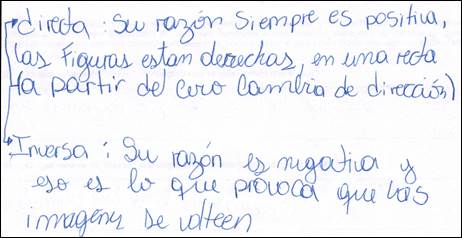 directa: Su razón siempre es positiva,
las figuras estan derechas, en una recta
(a partir del cero cambia de dirección)
Inversa: Su razón es negativa y
eso es lo que provoca que las
imagenes se volteen